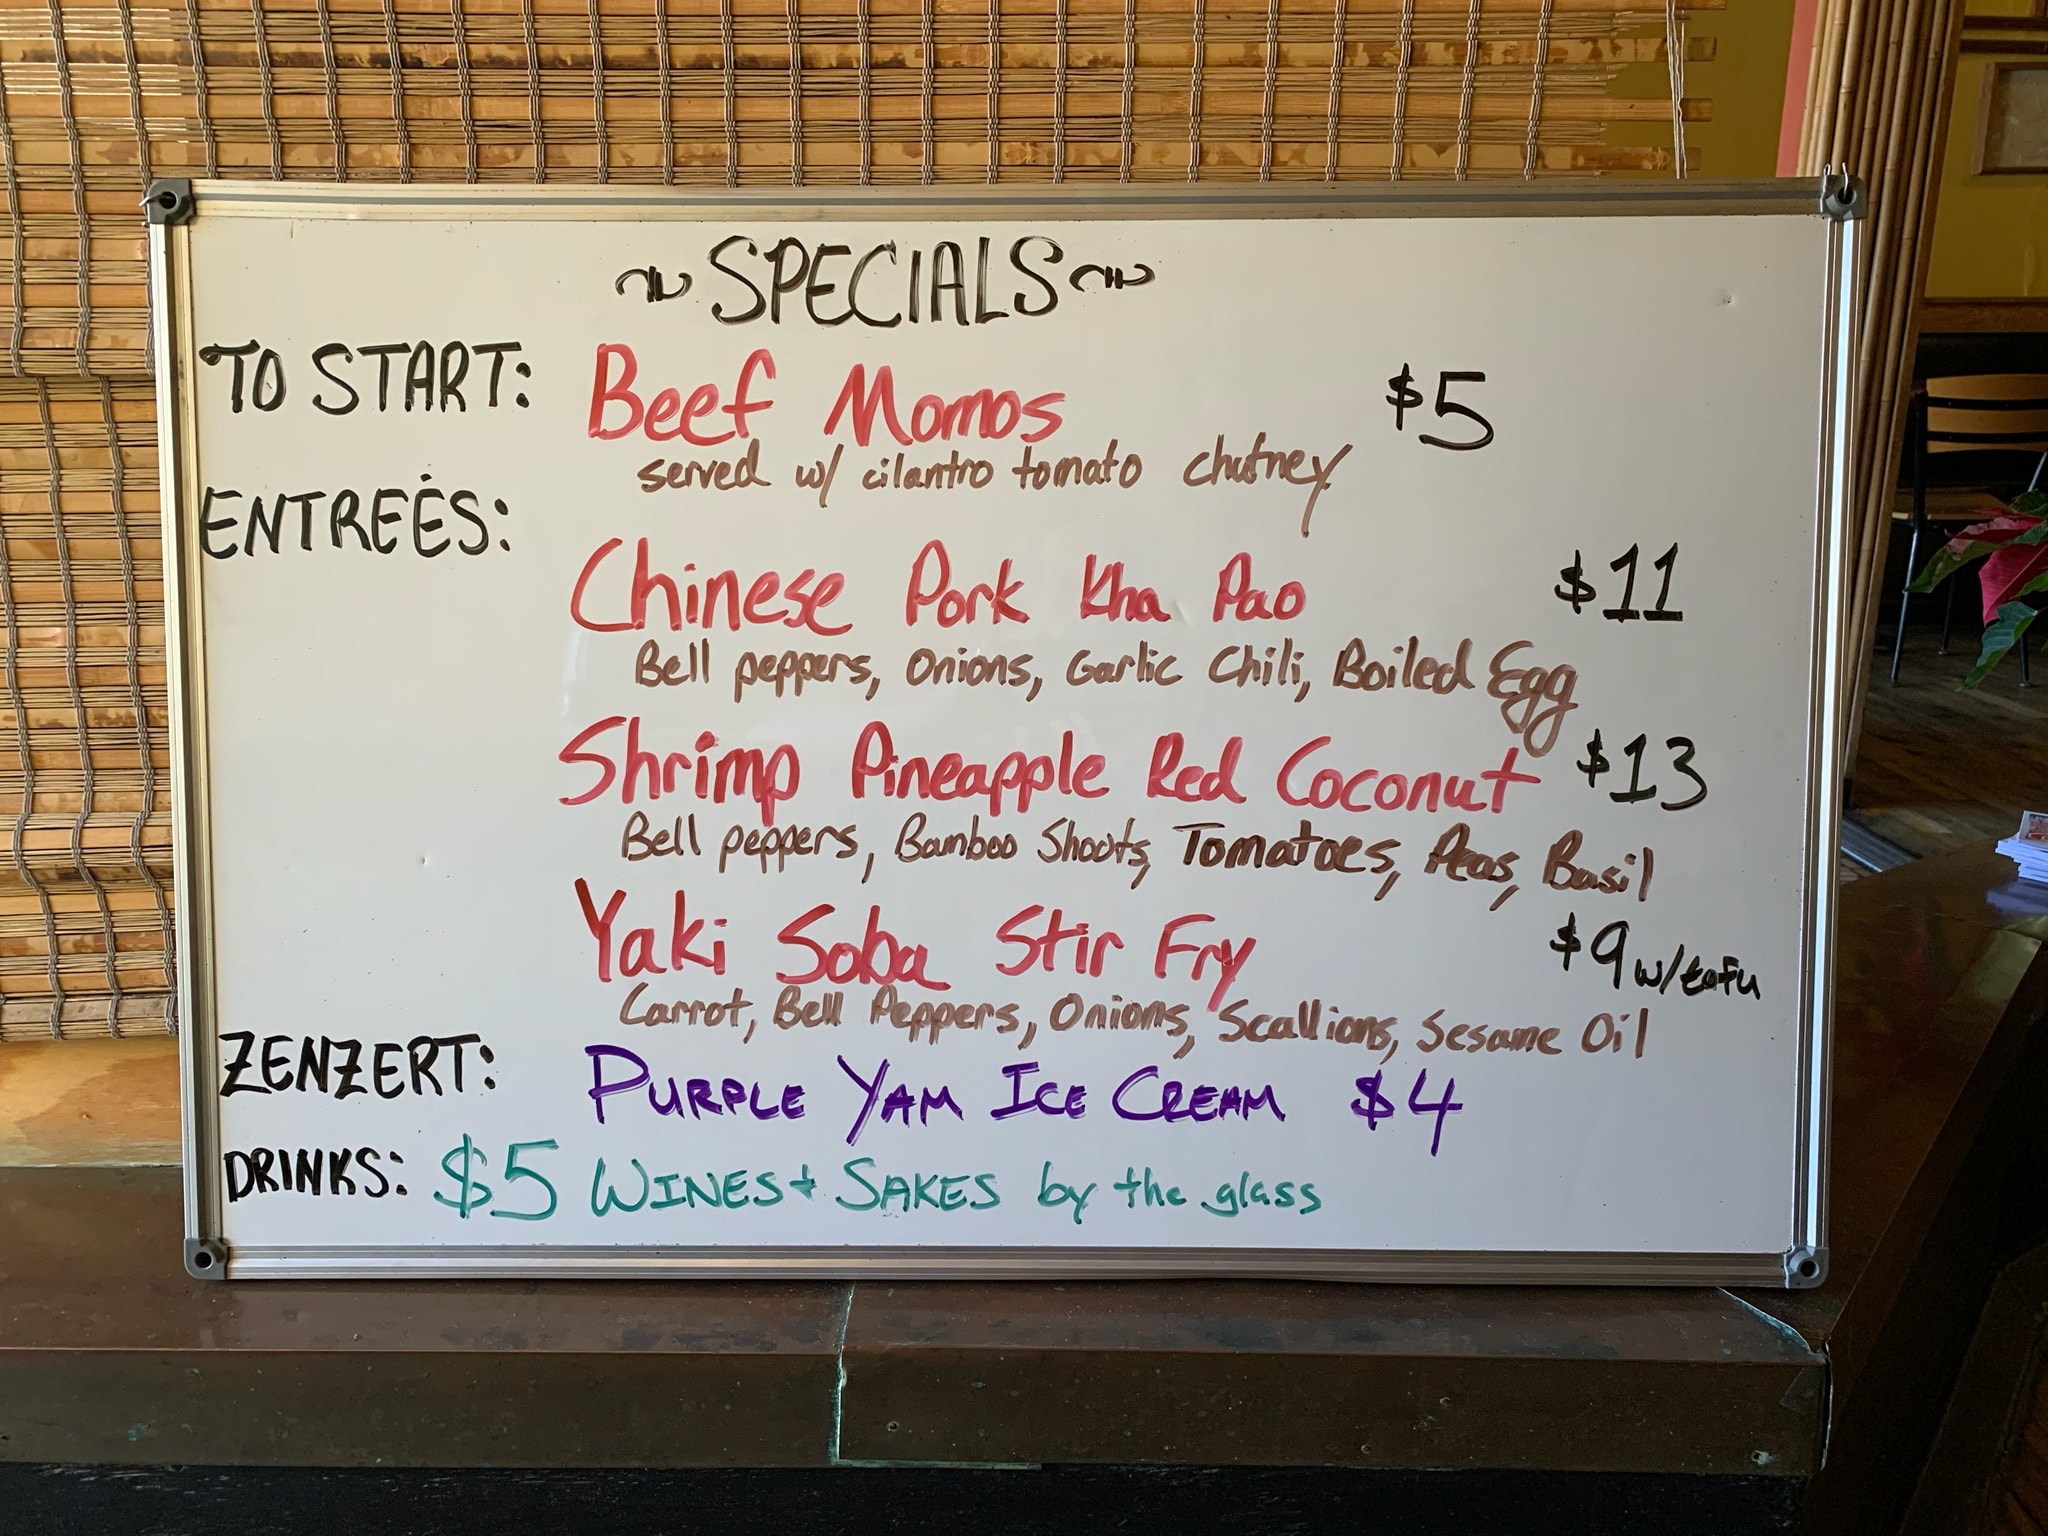 SPECIALS
TO START: Beef Momos $5
served w/ cilantro tomato chutney
ENTREÉS:
Chinese Pork Kha Pao $11
Bell peppers, Onions, Garlic Chili, Boiled Egg
Shrimp Pineapple Red Coconut $13
Bell peppers, Bamboo Shoots, Tomatoes, Peas, Basil
Yaki Soba Stir Fry $9 w/tofu
Carrot, Bell Peppers, Onions, Scallions, Sesame Oil
ZENZERT: PURPLE YAM ICE CREAM $4
DRINKS: $5 WINES + SAKES by the glass